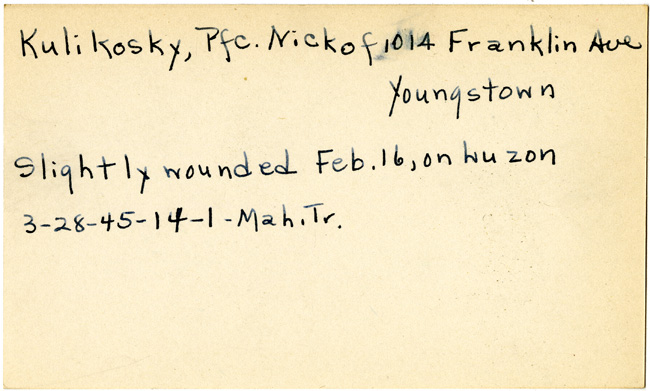 Kulikosky, Pfc. Nick of 1014 Franklin Ave
Youngstown
Slightly wounded Feb. 16, on Luzon
3-28-45-14-1-Mah. Tr.